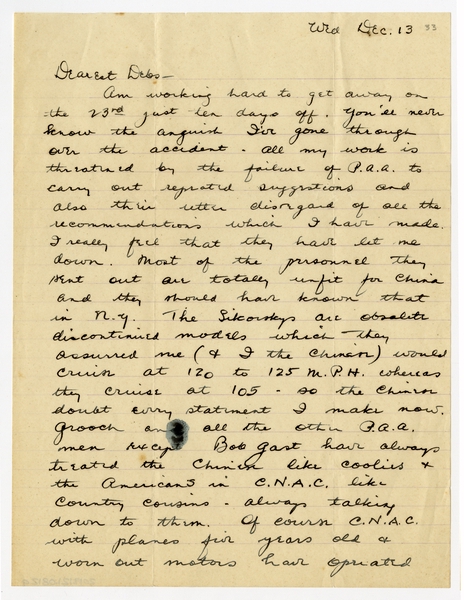 Wed Dec. 13 33
Dearest Debs—
Am working hard to get away on
the 23rd just ten days off. You'll never
know the anguish I've gone through
over the accident - all my work is
threatened by the failure of P.A.A. to
carry out repeated suggestions and
also their utter disregard of all the
recommendations which I have made.
I really feel that they have let me
down. Most of the personnel they
sent out are totally unfit for China
and they should have known that
in N.Y. The Sikorskys are obsolete
discontinued models which they
assured me (& I the Chinese) would
cruise at 120 to 125 M.P.H. whereas
they cruise at 105 - so the Chinese
doubt every statement I make now.
Grooch and all the other P.A.A.
men except Bob Gast have always
treated the Chinese like coolies &
the Americans in C.N.A.C. like
country cousins - always talking
down to them. Of course C.N.A.C.
with planes five years old &
worn out motors have operated